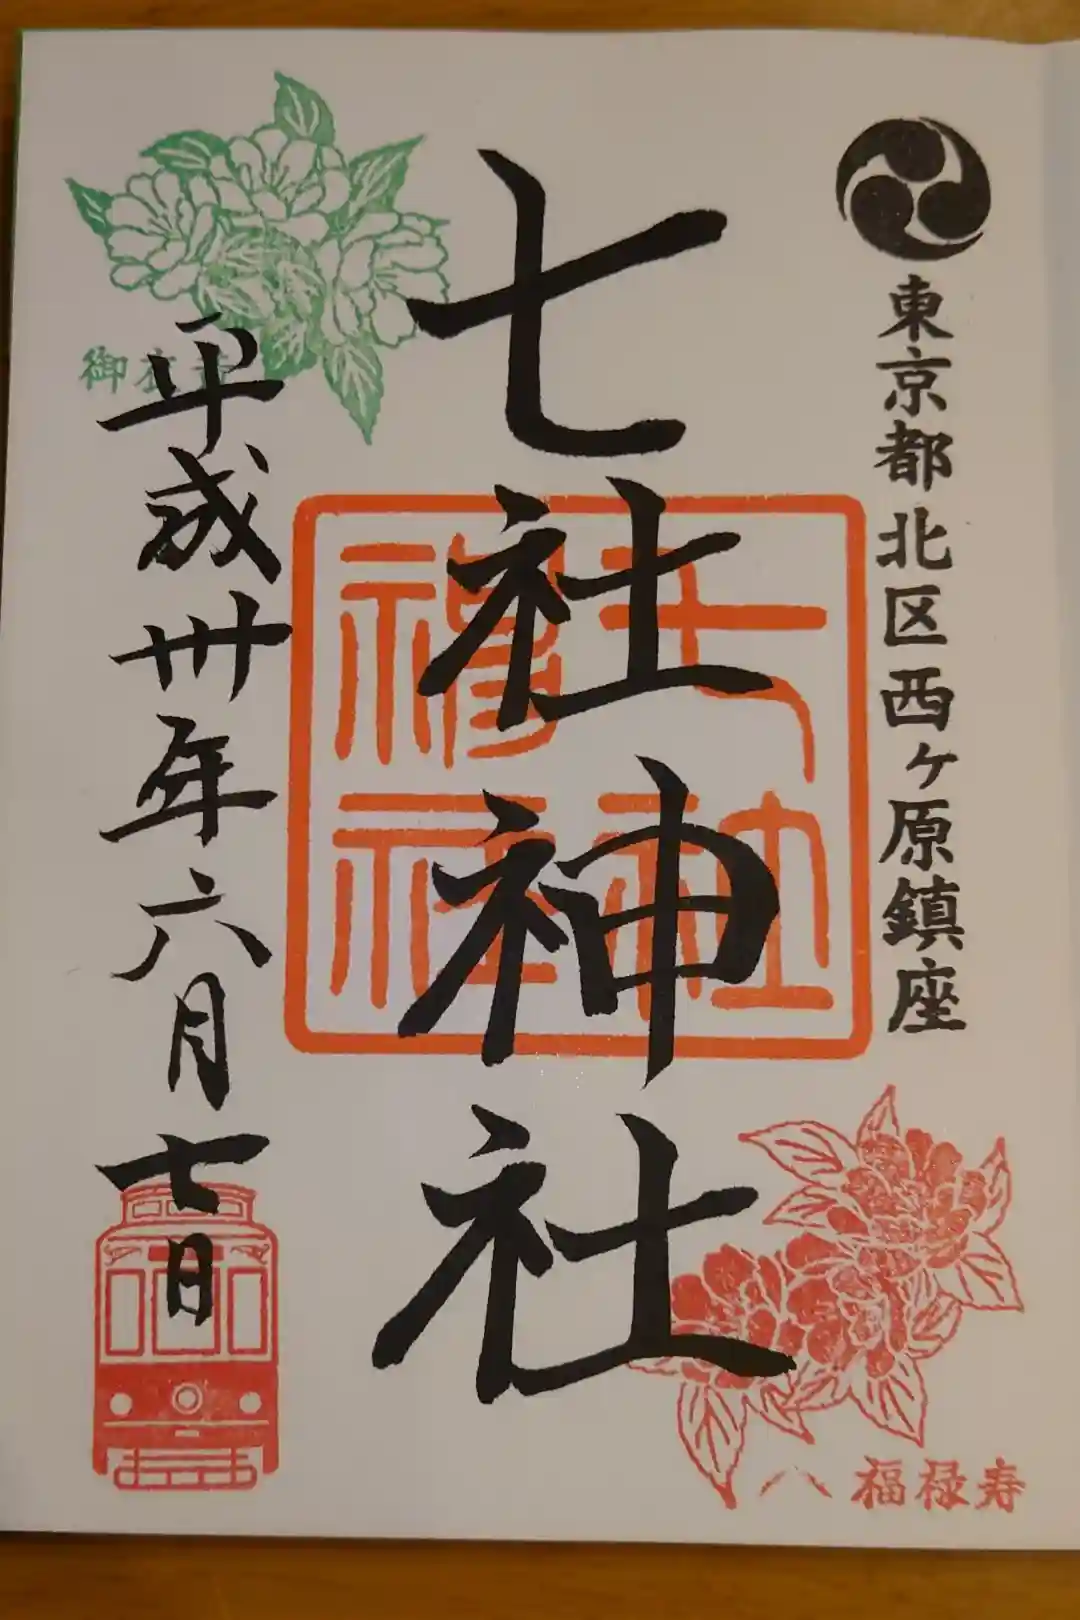 東京都北区西ヶ原鎮座
七社神社
平成卅年六月七日
御衣黄
福禄寿
七社